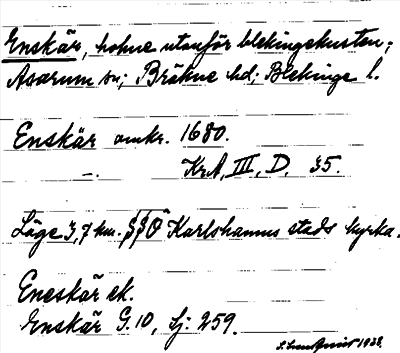 Enskär, holme utanför blekingekusten;
Asarum sn; Bräkne hd; Blekinge l.
Enskär omkr. 1680.
—. KrA, III, D. 35.
Läge 3,7 km. SSO Karlshamns stads kyrka.
Eneskär ek.
Enskär G. 10, Sj: 259.
1938.